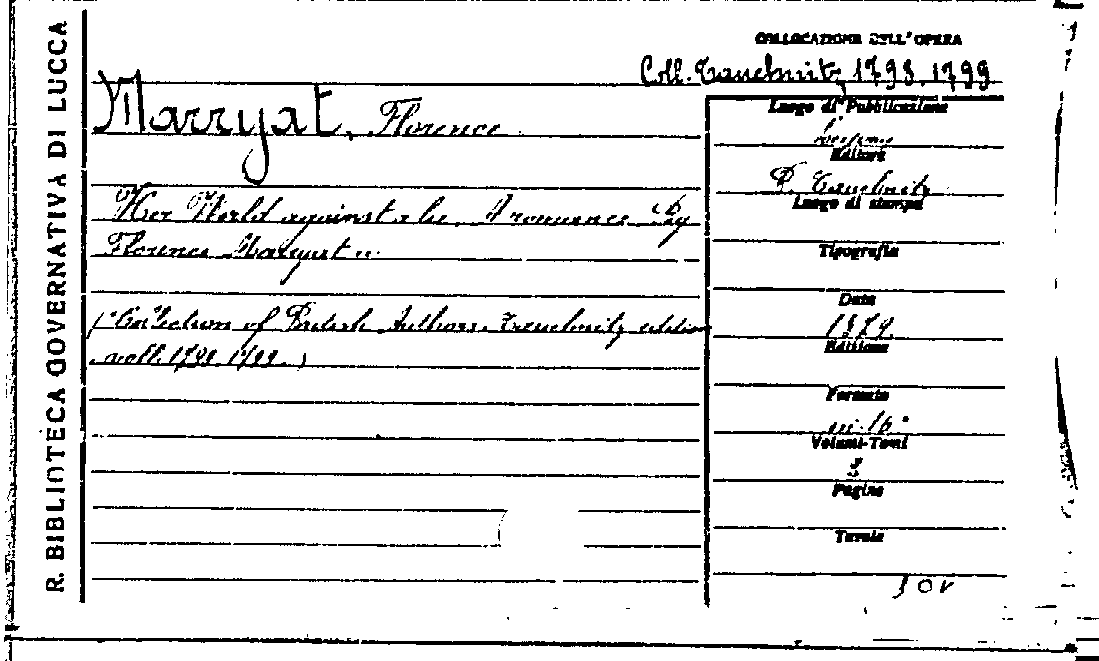 R. BIBLIOTECA GOVERNATIVA DI LUCCA
COLLOCAZIONE DELL'OPERA
Coll. Tauchnitz 1798. 1799
Marryat, Florence
Her World against a lie. A romance By
Florence Marryat
(Collection of British Authors. Tauchnitz edition
voll. 1798. 1799.)
Luogo di Pubblicazione
Editore
B. Tauchnitz
Luogo di stampa
Tipografia
Data
1879
Edizione
Formato
in 16°
Volumi-Tomi
Pagine
Tavole